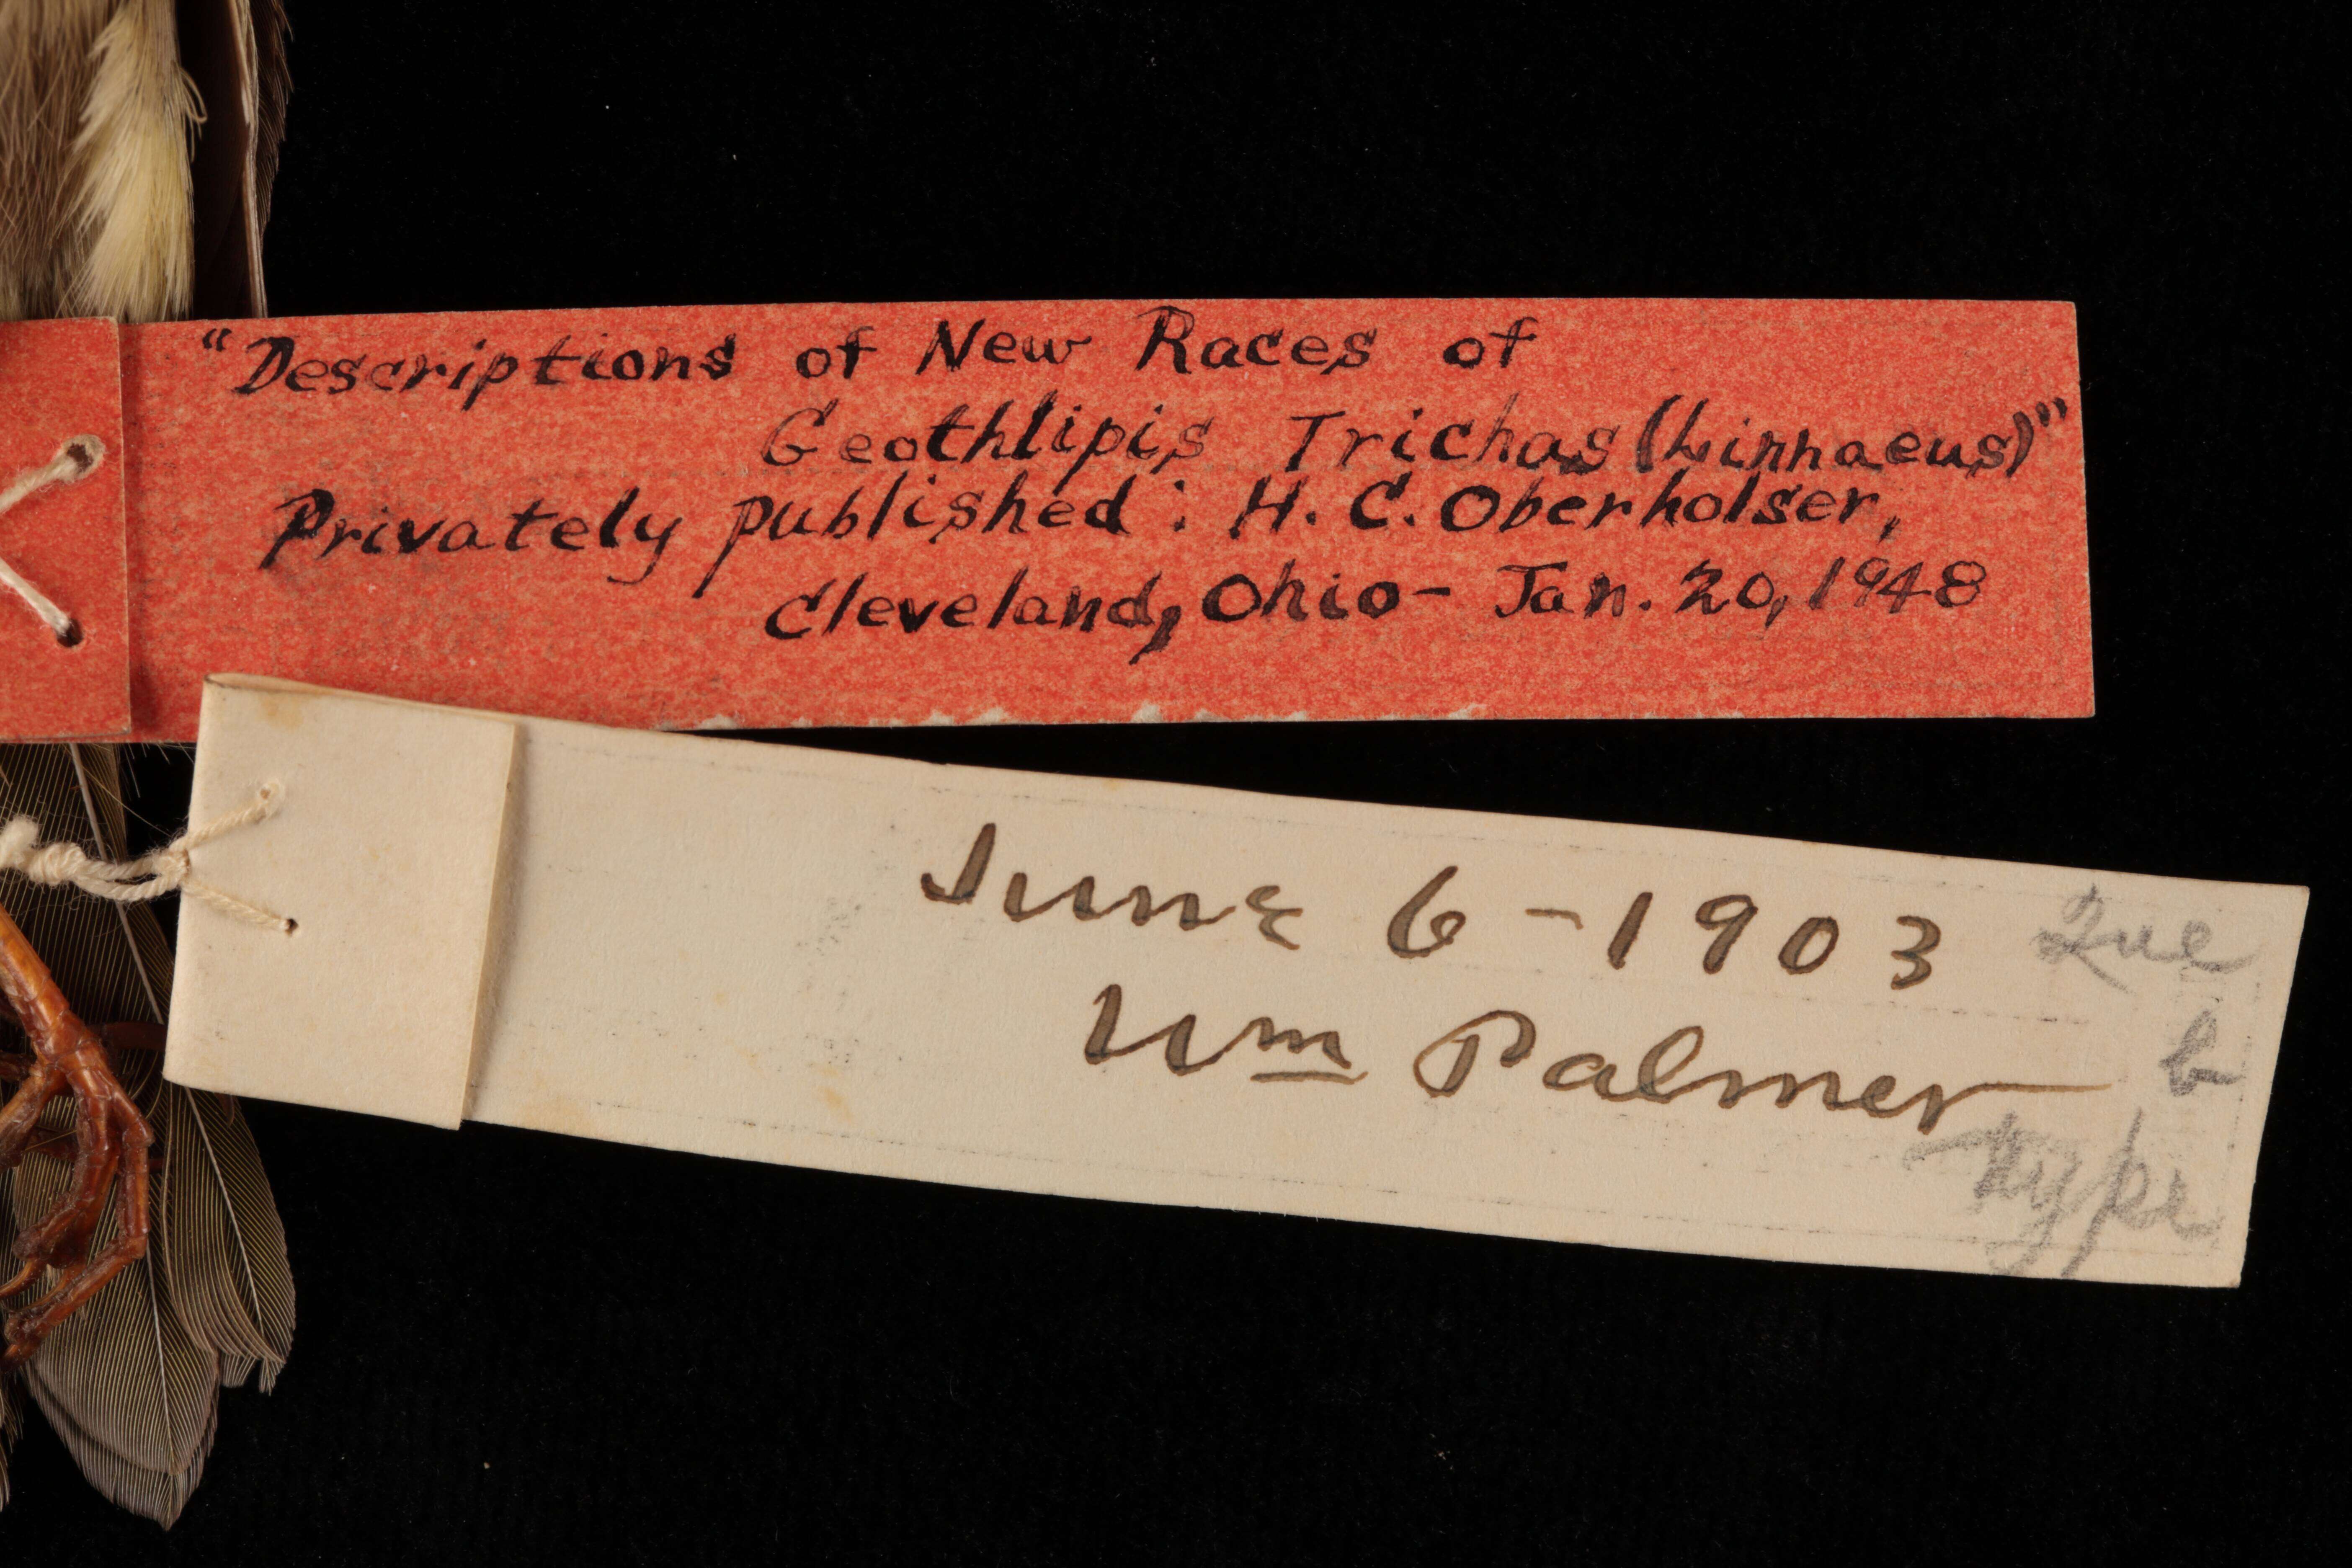 "Descriptions of New Races of
Geothlipis Trichas (Linnaeus)"
Privately published: H. C. Oberholser,
Cleveland, Ohio- Jan. 20, 1948
June 6-1903
Wm Palmer
b
type